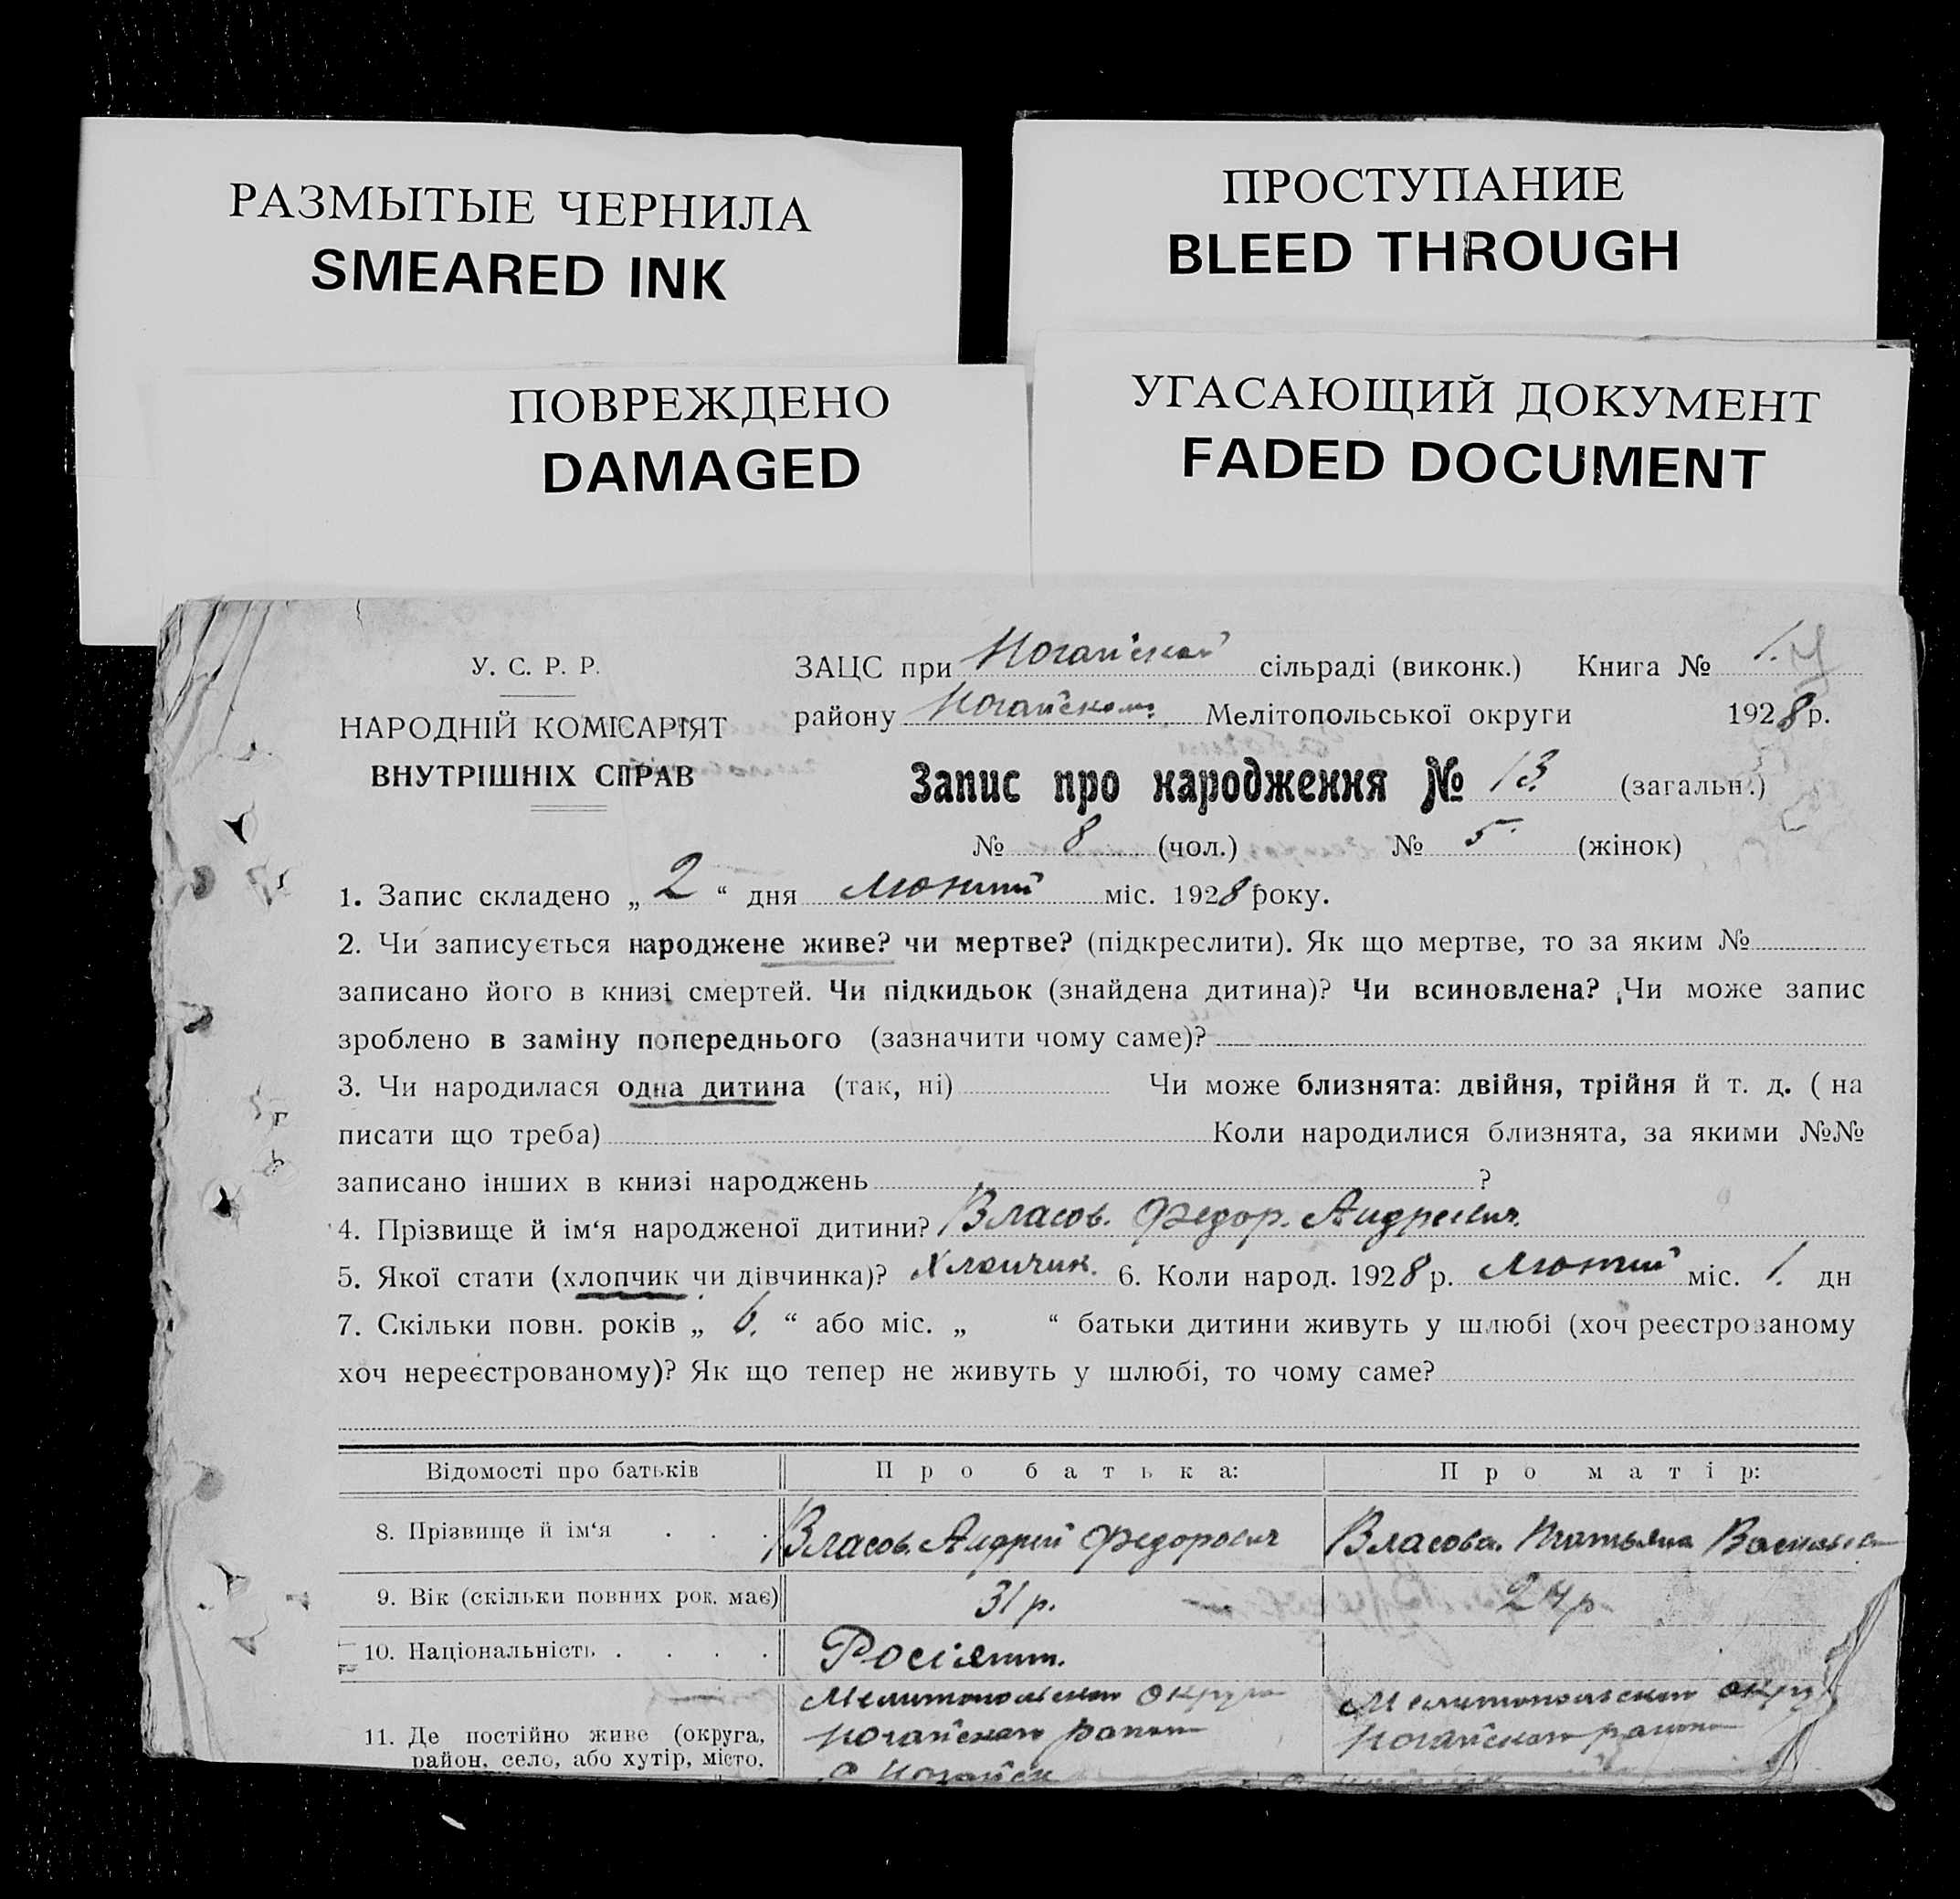 РАЗМЫТЫЕ ЧЕРНИЛА
SMEARED INK
ПРОСТУПАНИЕ
BLEED THROUGH
ПОВРЕЖДЕНО
DAMAGED
УГАСАЮЩИЙ ДОКУМЕНТ
FADED DOCUMENT
У. С. Р. Р.
НАРОДНІЙ КОМІСАРІЯТ
ВНУТРІШНІХ СПРАВ
ЗАЦС при Ногайской сільраді (виконк.) Книга № 1.
району Ногайском Мелітопольської округи 1928 р.
Запис про народження № 13. (загальн.)
№ 8 (чол.) № 5 (жінок)
1. Запис складено „ 2 “ дня Лютий міс. 1928 року.
2. Чи записується народжене живе? чи мертве? (підкреслити). Як що мертве, то за яким №
записано його в книзі смертей. Чи підкидьок (знайдена дитина)? Чи всиновлена? Чи може запис
зроблено в заміну попереднього (зазначити чому саме)?
3. Чи народилася одна дитина (так, ні) Чи може близнята: двійня, трійня й т. д. ( на
писати що треба) Коли народилися близнята, за якими №№
записано інших в книзі народжень ?
4. Прізвище й ім‘я народженої дитини? Власов. Федор. Андреевич.
5. Якої стати (хлопчик чи дівчинка)? Хлопчик. 6. Коли народ. 1928 р. Лютий міс. 1. дн
7. Скільки повн. років „ 6. “ або міс. „ “ батьки дитини живуть у шлюбі (хоч реєстрованому
хоч нереєстрованому)? Як що тепер не живуть у шлюбі, то чому саме?
Відомості про батьків Про батька: Про матір:
8. Прізвище й ім‘я . . . Власов. Андрій Федорович Власова. Татьяна
9. Вік (скільки повних рок. має) 31 р. 24 р
10. Національність . . . . Росіянин.
11. Де постійно живе (округа, Мелитопольскои округа Мелитопольскои
район, село, або хутір, місто, Ногайского района Ногайского района
с Ногайск